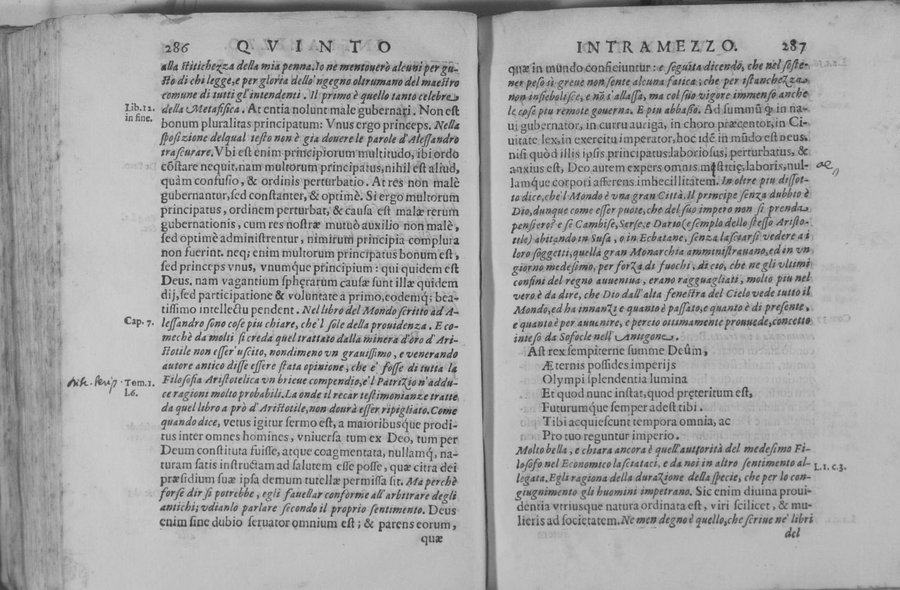 286 QVINTO
alla stitichezza della mia penna. Io ne mentouerò alcuni per gu-
sto di chi legge, e per gloria dello'ngegno oltrumano del maestro
comune di tutti gl'intendenti. Il primo è quello tanto celebre
Lib. 12.
in fine.
della Metafisica. At entia nolunt male gubernari. Non est
bonum pluralitas principatum: Vnus ergo princeps. Nella
sposizione delqual testo non è già douere le parole d'Alessandro
trascurare. Vbi est enim principiorum multitudo, ibi ordo
cōstare nequit, nam multorum principatus, nihil est aliud,
quàm confusio, & ordinis perturbatio. At res non malè
gubernantur, sed constanter, & optimè. Si ergo multorum
principatus, ordinem perturbat, & causa est malæ rerum
gubernationis, cum res nostræ mutuò auxilio non malè,
sed optimè administrentur, nimirum principia complura
non fuerint. neq; enim multorum principatus bonum est,
sed princeps vnus, vnumque principium: qui quidem est
Deus. nam vagantium spherarum causæ sunt illæ quidem
dij, sed participatione & voluntate a primo, eodemq; bea-
tissimo intellectu pendent. Nel libro del Mondo scritto ad A-
Cap. 7.
lessandro sono cose piu chiare, che'l sole della prouidenza. E co-
mechè da molti si creda quel trattato dalla minera d'oro d'Ari-
stotile non esser'uscito, nondimeno vn grauissimo, e venerando
autore antico disse essere stata opinione, che è fosse di tutta la
Tom. 1.
l. 6.
Filosofia Aristotelica vn brieue compendio, e'l Patrizio n'addu-
ce ragioni molto probabili. La onde il recar testimonianze tratte
da quel libro a prò d'Aristotile, non dourà esser ripigliato. Come
quando dice, vetus igitur sermo est, a maioribusque prodi-
tus inter omnes homines, vniuersa tum ex Deo, tum per
Deum constituta fuisse, atque coagmentata, nullamq, na-
turam satis instructam ad salutem esse posse, quæ citra dei
præsidium suæ ipsa demum tutellæ permissa sit. Ma perchè
forse dir si potrebbe, egli fauellar conforme all'arbitrare degli
antichi; vdianlo parlare secondo il proprio sentimento. Deus
enim sine dubio seruator omnium est; & parens eorum,
quæ
INTRAMEZZO. 287
quæ in mūndo conficiuntur: e seguita dicendo, che nel soste-
ner peso sì greue non sente alcuna fatica, che per istanchezza
non infiebolisce, e nō s'allassa, ma col suo vigore immenso anche
le cose piu remote gouerna. E piu abbasso. Ad summū q̃ in na-
ui gubernator, in curru auriga, in choro præcentor, in Ci-
uitate lex, in exercitu imperator, hoc idē in mūdo est Deus.
nisi quòd illis ipsis principatus laboriosus, perturbatus, &
anxius est, Deo autem expers omnis mæstitiæ, laboris, nul-
æ
lamque corpori afferens imbecillitatem. In oltre piu disot-
to dice, che'l Mondo è vna gran Città. Il principe senza dubbio è
Dio, dunque come esser puote, che del suo impero non si prenda
pensiero? e se Cambise, Serse, e Dario (esempio dello stesso Aristo-
tile) abitando in Susa, o in Ecbatane, senza lasciarsi vedere a i
loro soggetti, quella gran Monarchia amministrauano, ed in vn
giorno medesimo, per forza di fuochi, di ciò, che ne gli vltimi
confini del regno auuenuia, erano ragguagliati, molto piu nel
vero è da dire, che Dio dall'alta fenestra del Cielo vede tutto il
Mondo, ed ha innanzi e quanto è passato, e quanto è di presente,
e quanto è per auuenire, e perciò ottimamente prouuede, concetto
inteso da Sofocle nell'Antigone.
Ast rex sempiterne summe Deûm,
Æternis possides imperijs
Olympi splendentia lumina
Et quod nunc instat, quod præteritum est,
Futurumque semper adest tibi.
Tibi acquiescunt tempora omnia, ac
Pro tuo reguntur imperio.
Molto bella, e chiara ancora è quell'autorità del medesimo Fi-
losofo nel Economico lasciataci, e da noi in altro sentimento al-
L. 1. c. 3.
legata. Egli ragiona della durazione della spezie, che per lo con-
giugnimento gli huomini impetrano. Sic enim diuina proui-
dentia vtriusque natura ordinata est, viri scilicet, & mu-
lieris ad societatem. Ne men degno è quello, che scriue ne' libri
del